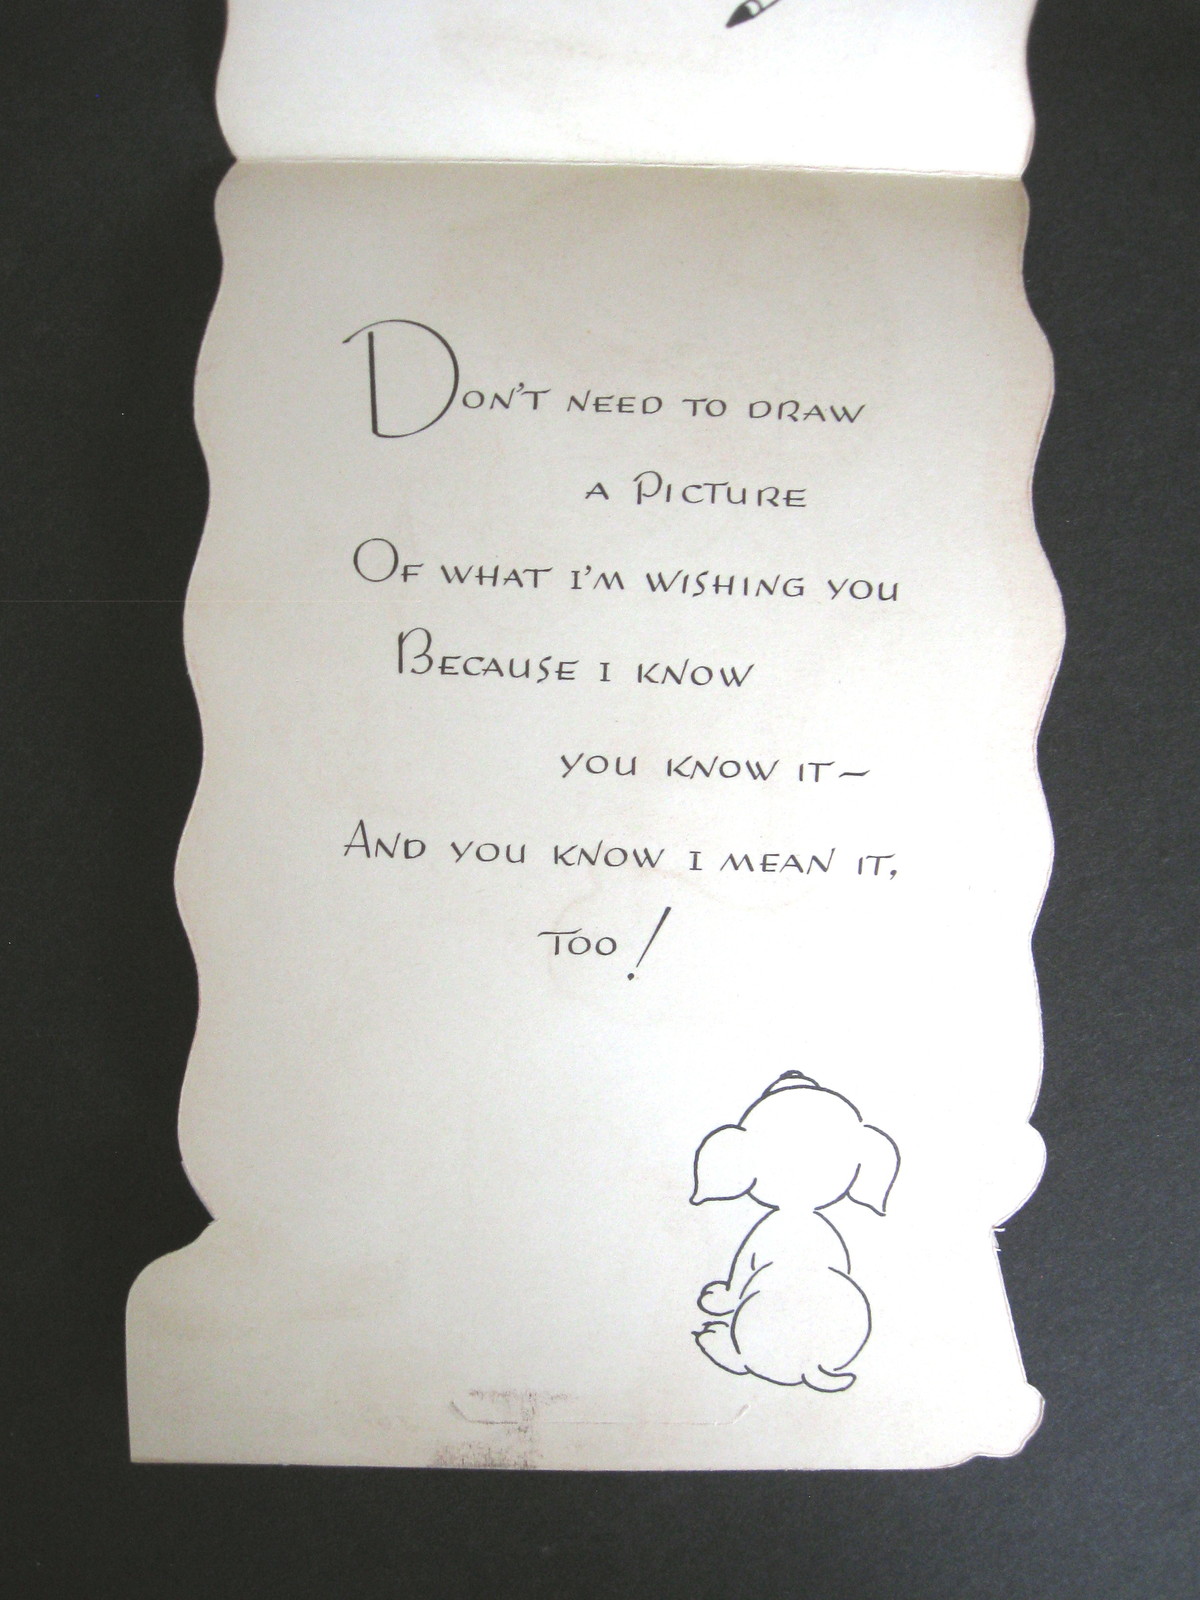 Don't need to draw
a picture
Of what I'm wishing you
Because I know
you know it~
And you know I mean it,
too!